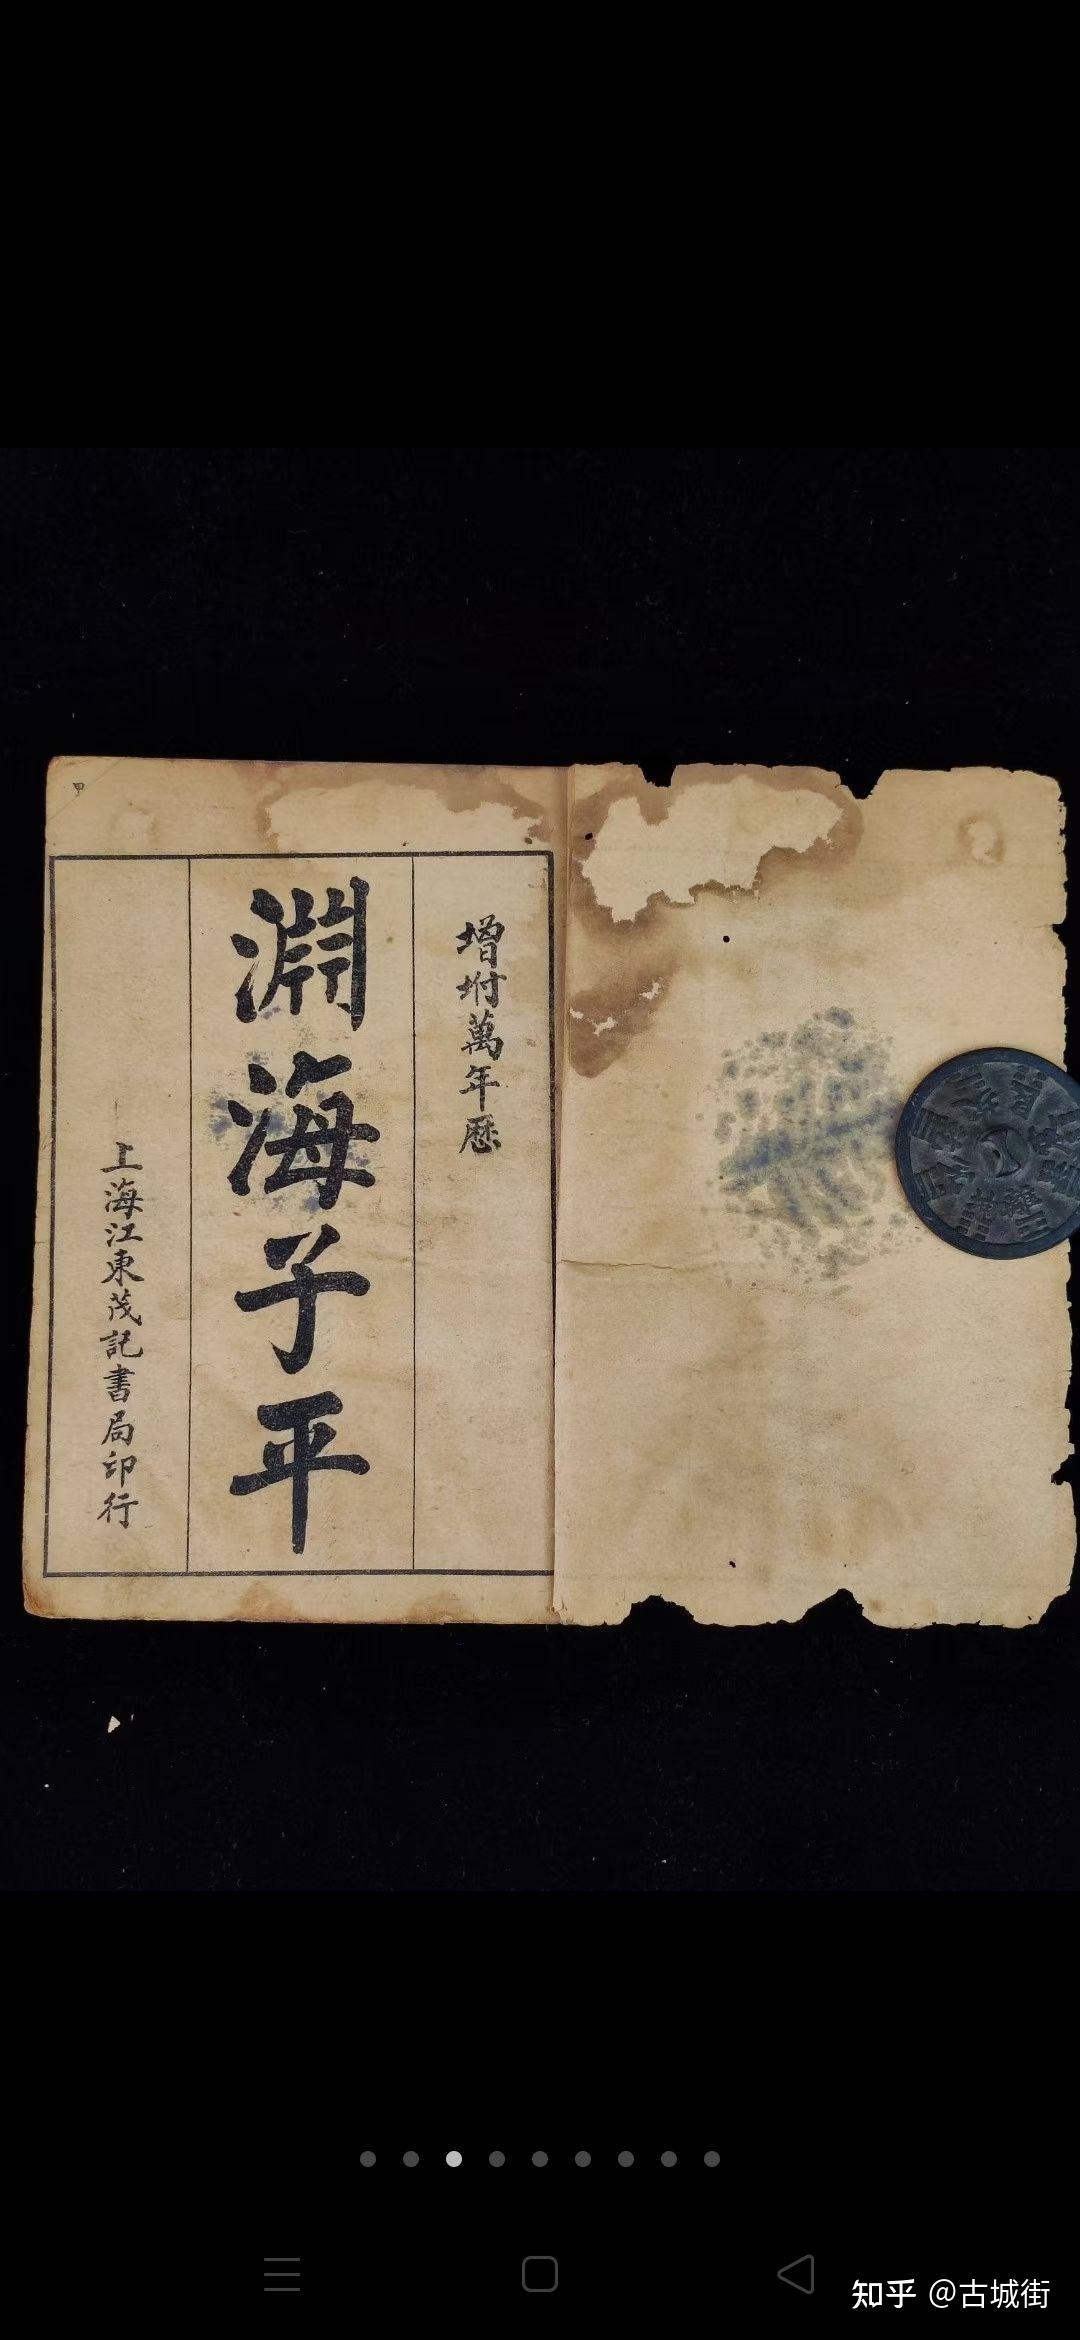 增坿萬年歷
淵海子平
上海江東茂記書局印行
甲
知乎 @古城街